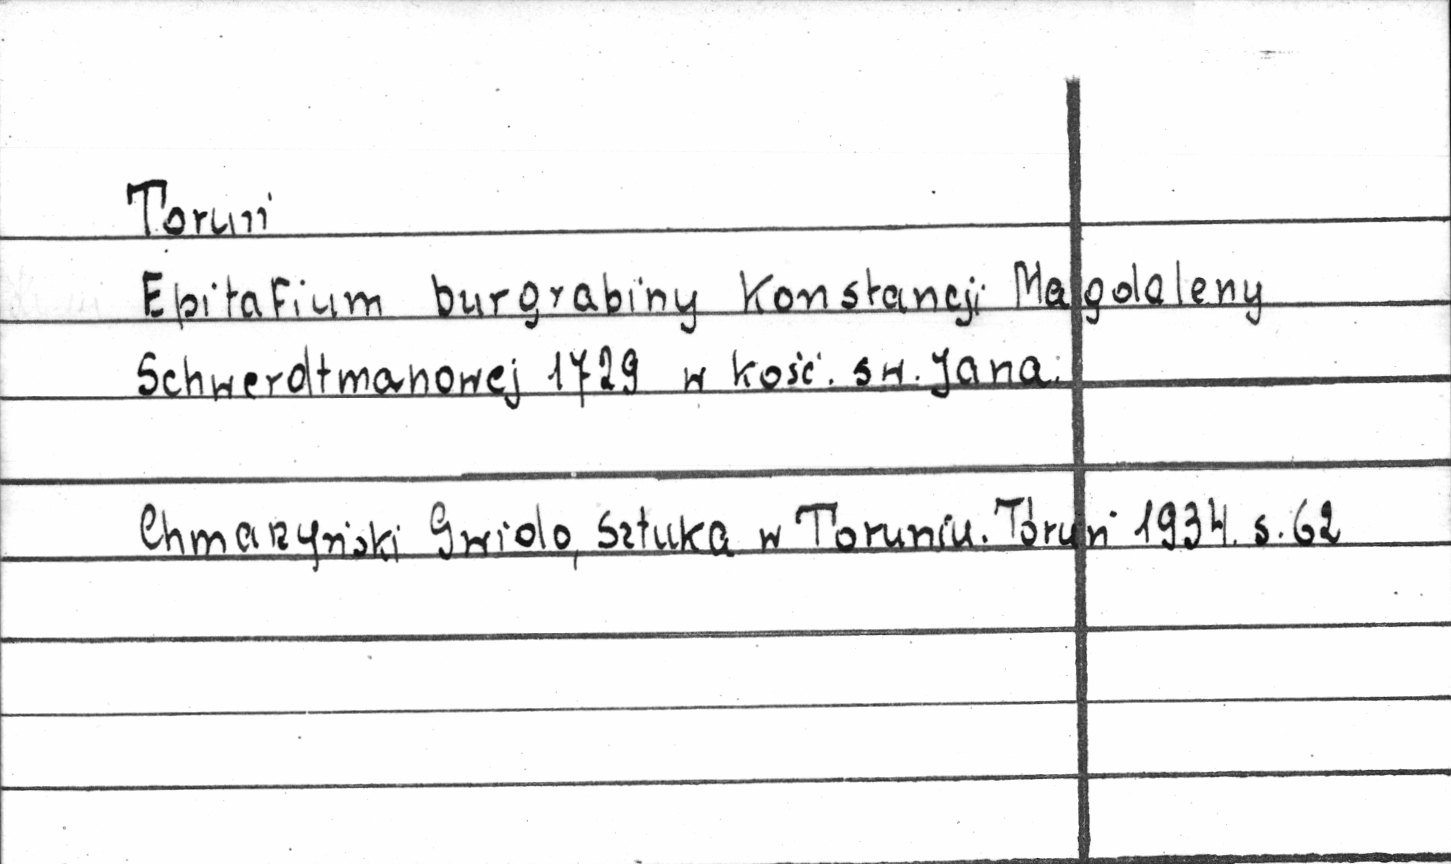 Toruń
Epitafium burgrabiny Konstancji Magdaleny
Schwerdtmanowej 1729 w kośc. sw. Jana.
Chmarzyński Gwido, Sztuka w Toruniu. Toruń 1934. s. 62